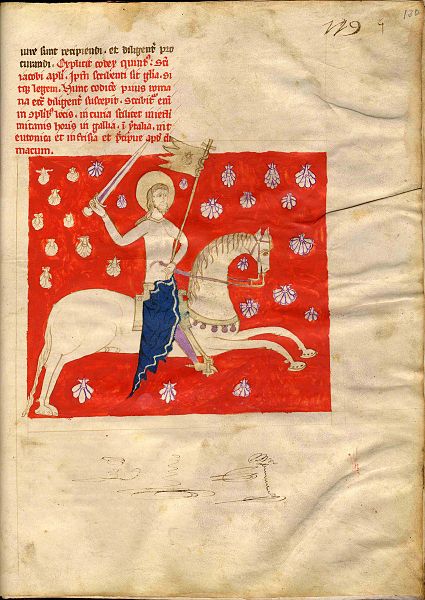 119
iure sunt recipiendi. et diligent pro
curandi. Explicit codex quint. sci
iacobi apli. Ipsum scribenti sit glia. si
tq; legenti. Hunc codicem prius roma
na eccl diligent suscepit. Scribit eni
in locis. in curia scilicet
mitanis horis in gallia. i ytalia. int
eutonica et in frisia et precipue apud clu
niacum.